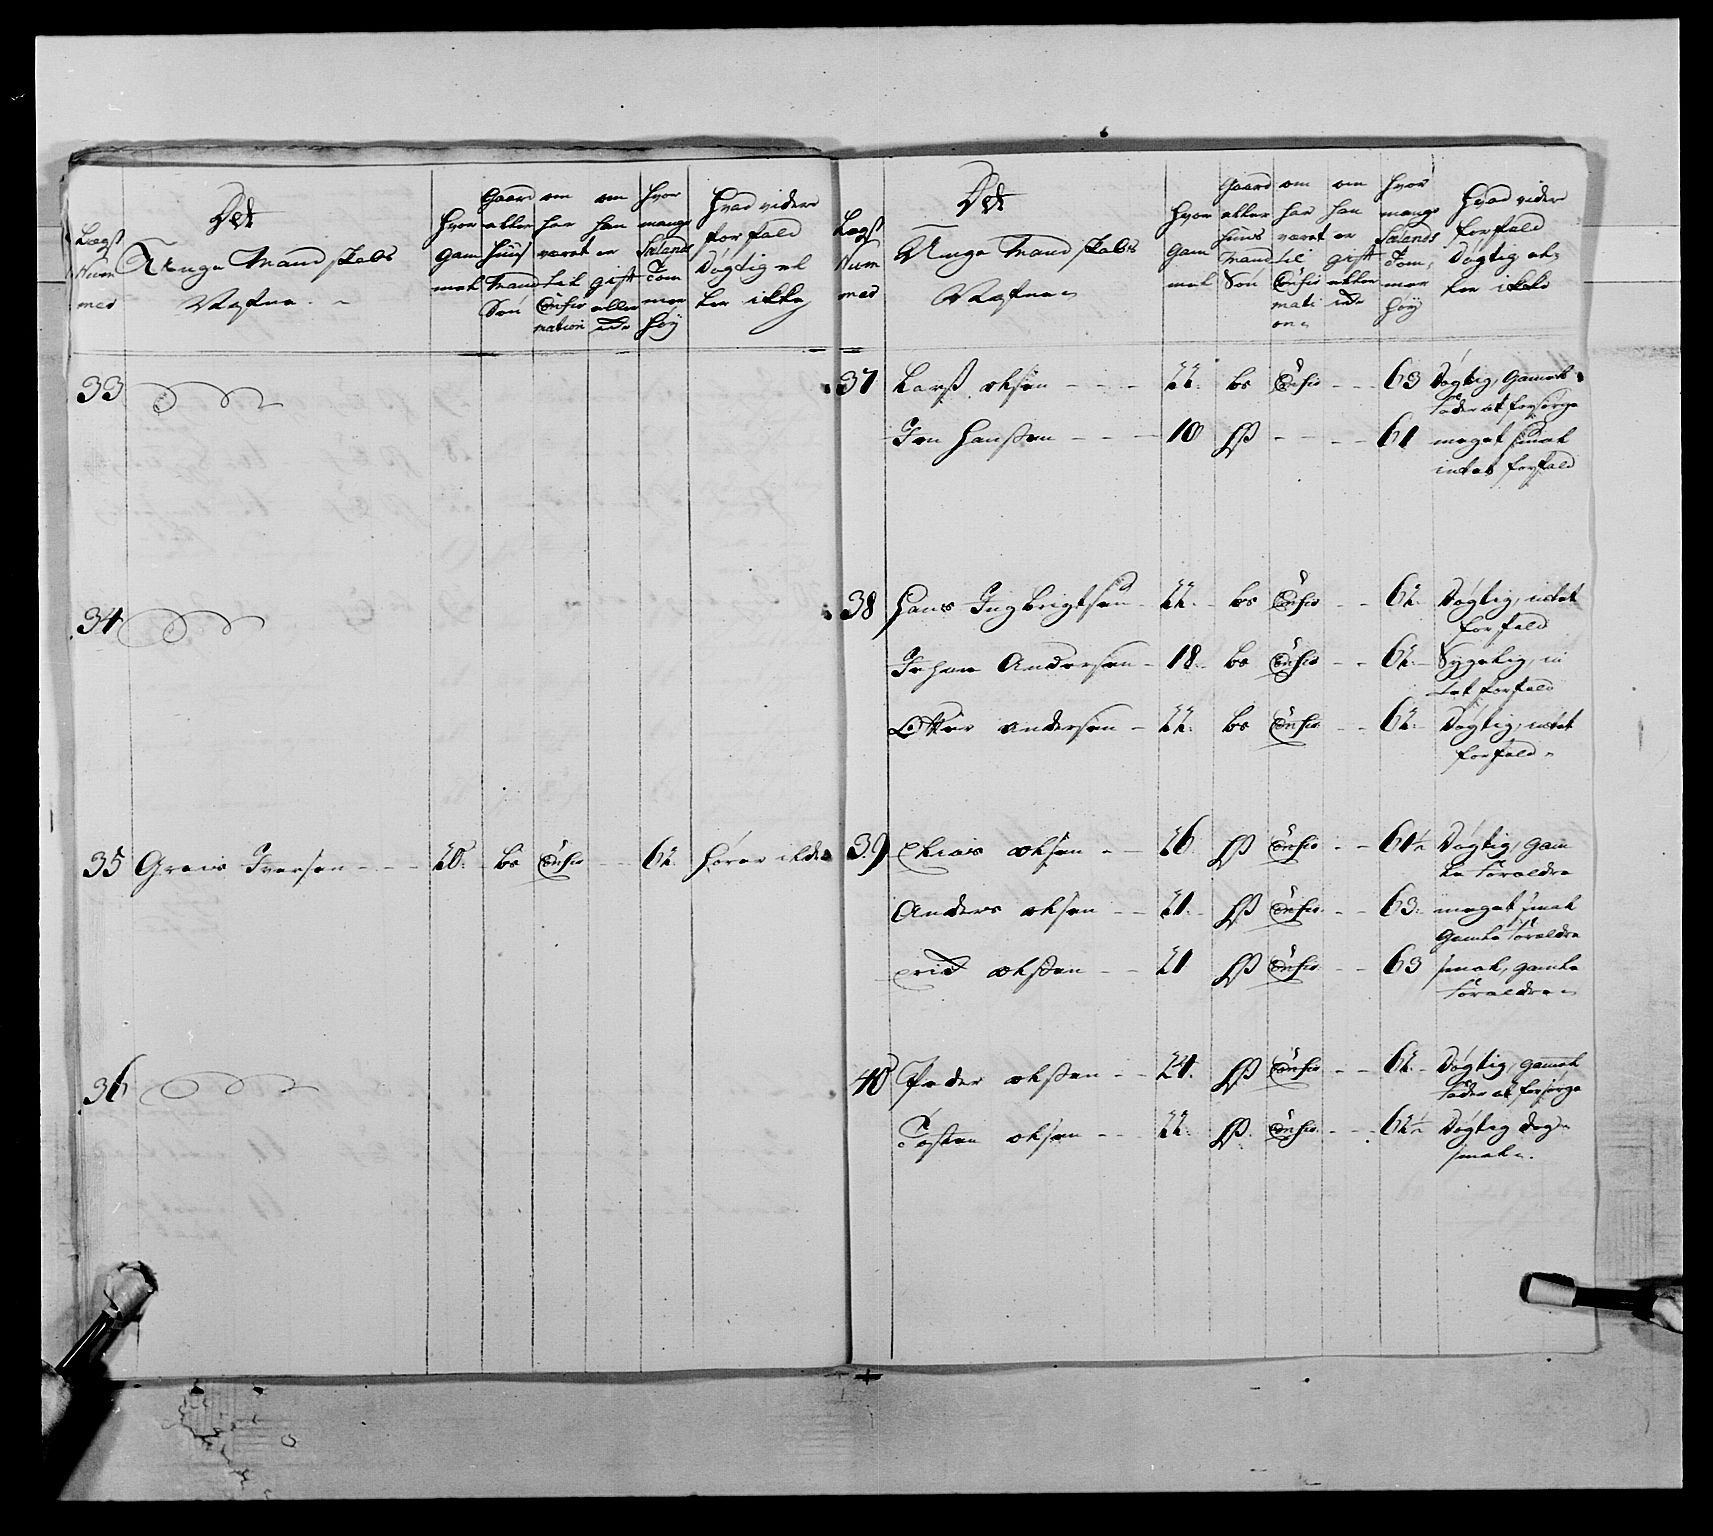 Lægs Num mer
Det Unge Mandskabs Nafne
Hvor gam mel
Gaard eller Huus Mand Søn
om har været til Confir mation
om han er gift eller ide
Hvor mange Sælands Tom mer Høy
Hvad videre forfald Døgtig el ler ikke
33
34
35 Greis Iversen 20. bs Confir 62. hører ilde
36
Lægs Num mer
Det Unge Mandskabs Nafne
Hvor gam mel
Gaard eller Huus Mand Søn
om har været til Confir mati on
om han er gift eller ide
Hvor mange Sælands Tom mer Høy
Hvad videre forfald Døgtig el ler ikke
37 Larß olsen 22. bs Confir 63 Døgtig, Gamel
Fader at forsørge
Jon Hanßen 10 hß 61 meget smal
intet forfald
38 Hans Ingbrigtsen 22. bs Confir 62. Døgtig, intet
forfald
Johan Andersen 18. bs Confir 62. Sygelig, in
tet forfald
Otter andersen 22. bs Confir 62. Døgtig, intet
forfald
39 Elias olsen 26 hß Confir 61½ Døgtig, gam
le Foreldre
Anders olsen 21. hß Confir 63. meget smal
Gamle Foreldre
erid olßen 21 hß Confir 63 smal, gamle
Foreldre
40 Peder olßen 24. hß Confir 62. Døgtig, gamel
Fader at forsørge
Tosten olsen 22. hß. Confir 62½ Døgtig dog
smal.